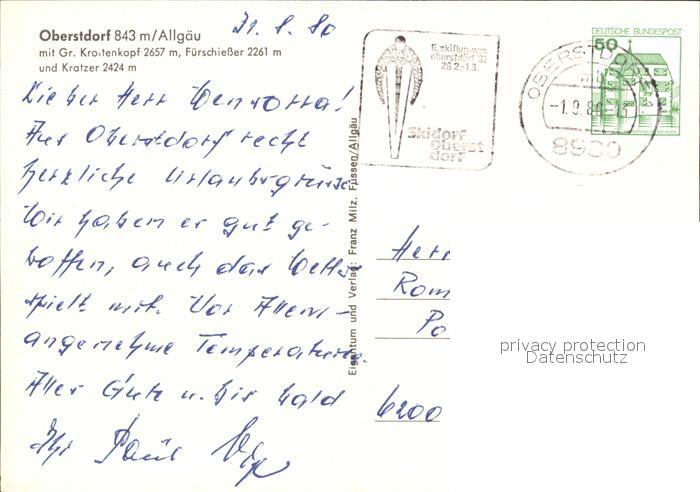 Oberstdorf 843 m/Allgäu
mit Gr. Krottenkopf 2657 m, Fürschießer 2261 m
und Kratzer 2424 m
31.8.80
Lieber Herr
Aus Oberstdorf recht
herzliche Urlaubsgrüsse
Wir haben es gut ge-
troffen, auch das Wetter
spielt mit. Vor Allem –
angenehme Temperaturen.
Alles Gute u. bis bald
Ihr Paul
Eigentum und Verlag: Franz Milz, Füssen/Allgäu
6. skiflug-wm
oberstdorf '81
26.2.-1.3.
Skidorf
oberst
dorf
OBERSTDORF
-1.9.80
8980
DEUTSCHE BUNDESPOST
50
Herr
Rom
Po
6200
privacy protection
Datenschutz